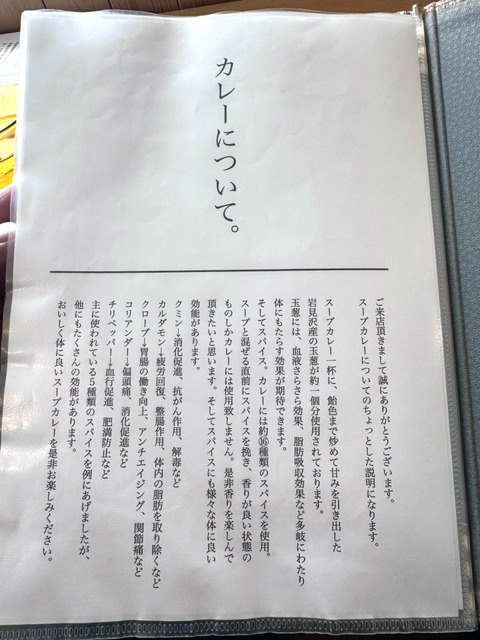 カレーについて。
ご来店頂きまして誠にありがとうございます。
スープカレーについてのちょっとした説明になります。
スープカレー一杯に、飴色まで炒めて甘みを引き出した
岩見沢産の玉葱が約一個分使用されております。
玉葱には、血液さらさら効果、脂肪吸収効果など多岐にわたり
体にもたらす効果が期待できます。
そしてスパイス。カレーには約⑯種類のスパイスを使用。
スープと混ぜる直前にスパイスを挽き、香りが良い状態の
ものしかカレーには使用致しません。是非香りを楽しんで
頂きたいと思います。そしてスパイスにも様々な体に良い
効能があります。
クミン→消化促進、抗がん作用、解毒など
カルダモン→疲労回復、整腸作用、体内の脂肪を取り除くなど
クローブ→胃腸の働き向上、アンチエイジング、関節痛など
コリアンダー→偏頭痛、消化促進など
チリペッパー→血行促進、肥満防止など
主に使われている5種類のスパイスを例にあげましたが、
他にもたくさんの効能があります。
おいしく体に良いスープカレーを是非お楽しみください。